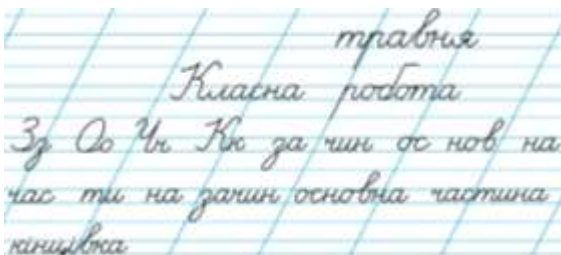 травня
Класна робота
Зз Оо Чч Кк за чин ос нов на
час ти на зачин основна частина
кінцівка